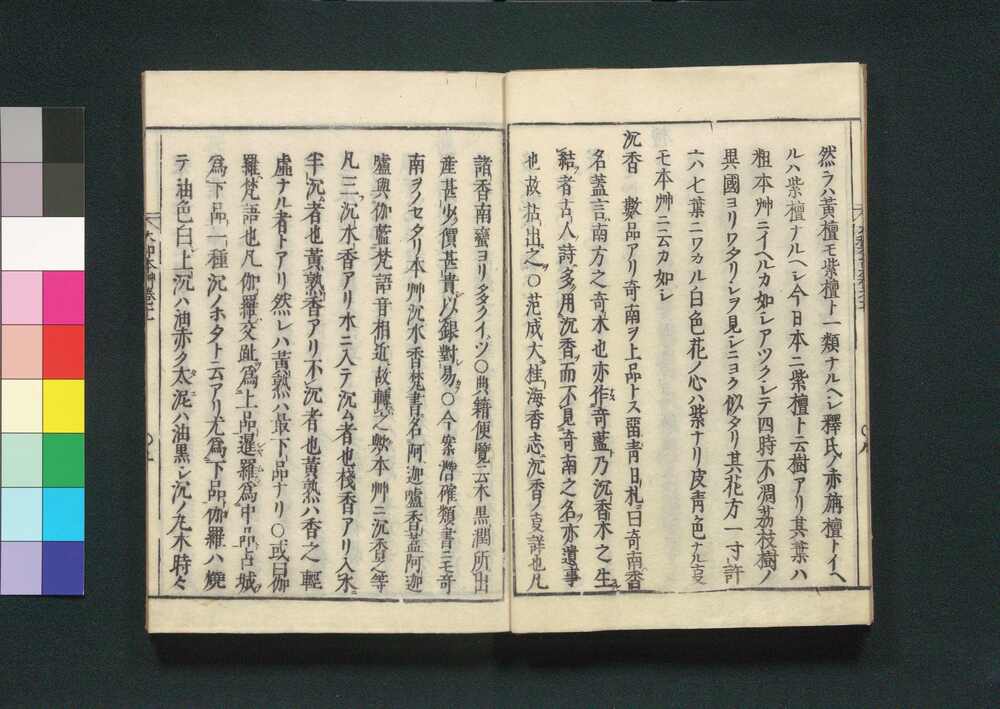 然ラハ黃檀モ紫檀ト一類ナルヘシ釋氏ノ赤旃檀トイヘ
ルハ紫檀ナルヘシ今日本ニ紫檀ト云樹アリ其葉ハ
粗本艸ニイヘルカ如シアツクシテ四時不凋茘枝樹ノ
異國ヨリワタリシヲ見シニヨク似タリ其花方一寸許
六七葉ニワカル白色花ノ心ハ紫ナリ皮靑色ナル
モ本艸ニ云カ如シ
沉香 數品アリ奇南ヲ上品トス畱靑日札曰奇南香
名蓋言南方之奇木也亦作奇藍乃沉香木之生
結者古人詩多用沉香而不見奇南之名亦遺事
也故拈出之○范成大桂海香志沉香ノ詳也凡
諸香南蠻ヨリ多クイヅ○典籍便覽云木黒潤所出
産甚少價甚貴以銀對易○今案潛確類書ニモ奇
南ヲノセタリ本艸沉水香梵書名阿迦嚧香蓋阿迦
嚧與伽藍梵語音相近故轉之歟本艸ニ沉香之等
凡三沉水香アリ水ニ入テ沉ム者也棧香アリ入水
半沉者也黃熟香アリ不沉者也黃熟ハ香之輕
虛ナル者トアリ然レハ黃熟ハ最下品ナリ○或曰伽
羅梵語也凡伽羅交趾爲上品暹羅爲中品占城
爲下品一種沉ノホタト云アリ尤爲下品伽羅ハ燒
テ油色白上沉ハ油赤ク太泥ハ油黒シ沉ノ丸木時々
大和本艸卷十一